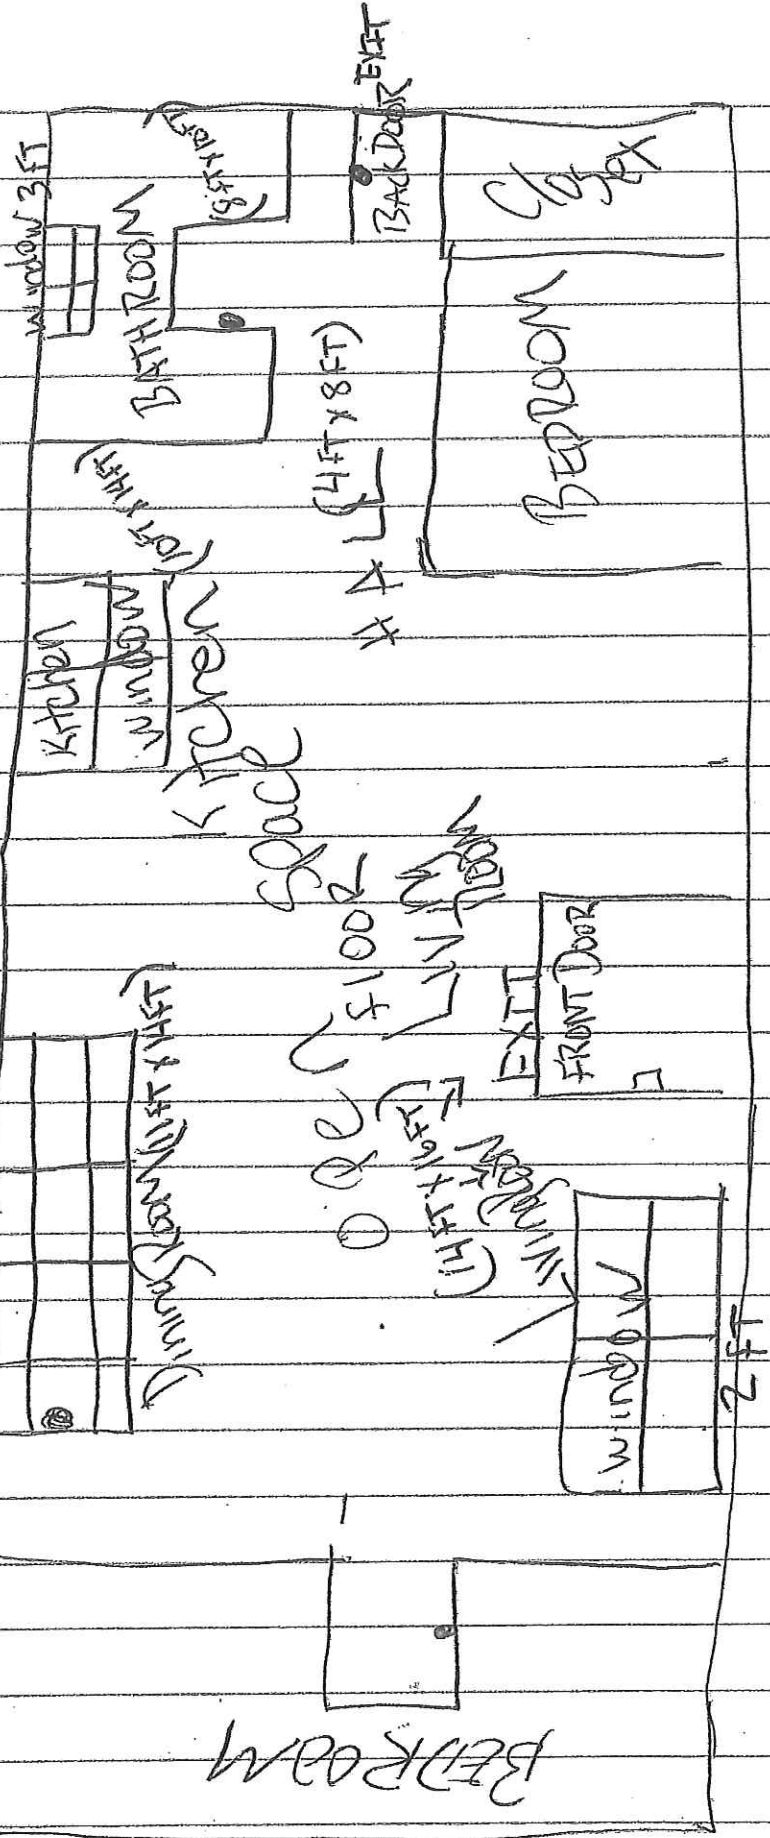 Window 3 FT
BATHROOM
(8FT x 10FT)
BACK DOOR EXIT
Closet
BEDROOM
HALL (4FT x 8FT)
Kitchen
Window
Kitchen (10FT x 14FT)
OPEN FLOOR SPACE
LIVING ROOM
(14FT x 16FT)
EXIT
FRONT DOOR
Dining Room (11FT x 14FT)
WINDOW
2 FT
BEDROOM